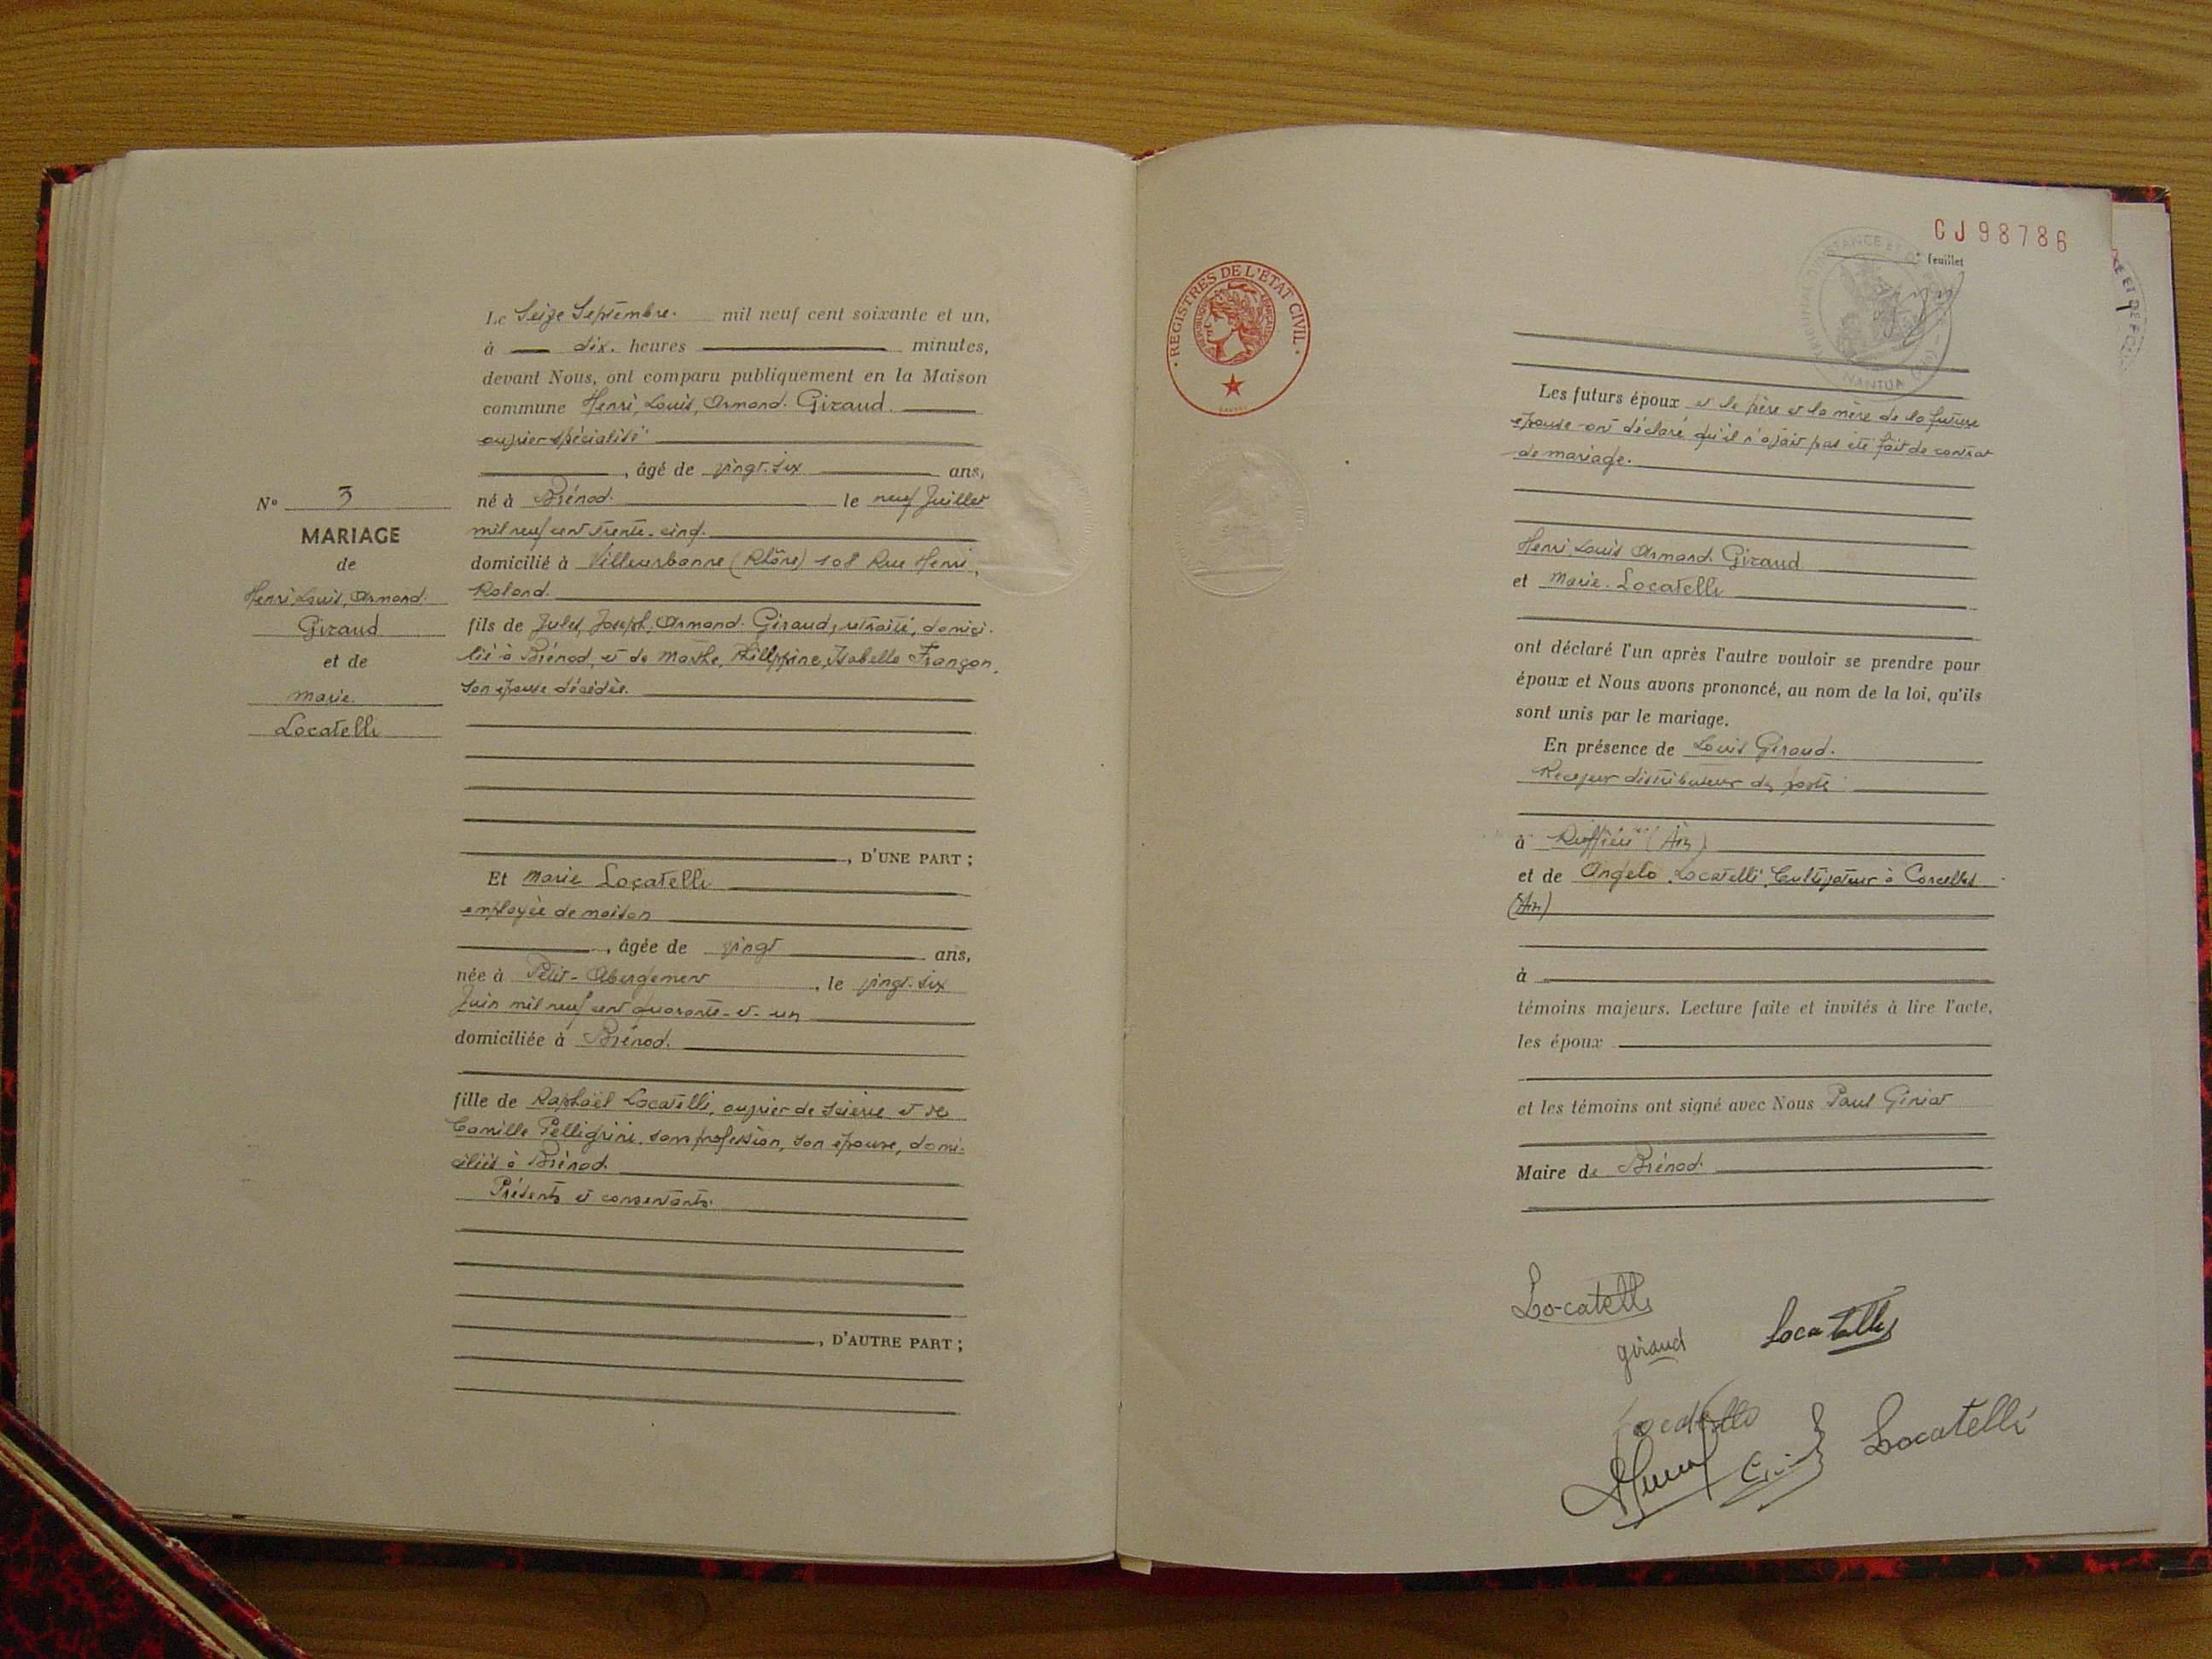 Le Seize Septembre. mil neuf cent soixante et un,
à dix. heures minutes,
devant Nous, ont comparu publiquement en la Maison
commune Henri, Louis, Armand. Giraud.
ouvrier spécialisé
, âgé de vingt. six ans,
né à Brénod. le neuf Juillet
mil neuf cent trente-cinq.
domicilié à Villeurbanne (Rhône) 108 Rue Henri
Roland.
fils de Jules, Joseph, Armand. Giraud, retraité, domici-
lié à Brénod, et de Marthe, Philippine, Isabelle Françon,
son épouse décédée.
, D'UNE PART ;
Et Marie Locatelli
employée de maison
, âgée de vingt ans,
née à Petit-Abergement, le vingt-six
Juin mil neuf cent quarante-et-un
domiciliée à Brénod.
fille de Raphaël Locatelli, ouvrier de scierie et de
Camille Pelligrini, sans profession, son épouse, domi-
ciliés à Brénod.
Présents et consentants.
, D'AUTRE PART ;
N° 3
MARIAGE
de
Henri, Louis, Armand.
Giraud
et de
Marie.
Locatelli
REGISTRES DE L'ÉTAT CIVIL
CJ98786
feuillet
NANTUA
Les futurs époux et le père et la mère de la future
épouse ont déclaré qu'il n'avait pas été fait de contrat
de mariage.
Henri, Louis Armand. Giraud
et Marie. Locatelli
ont déclaré l'un après l'autre vouloir se prendre pour
époux et Nous avons prononcé, au nom de la loi, qu'ils
sont unis par le mariage.
En présence de Louis Giraud.
Receveur distributeur des postes
à Ruffieu (Ain)
et de Angelo Locatelli, Cultivateur à Corcelles
(Ain)
à
témoins majeurs. Lecture faite et invités à lire l'acte,
les époux
et les témoins ont signé avec Nous Paul Giriat
Maire de Brénod.
Locatelli
giraud
Locatelli
Locatelli
Locatelli